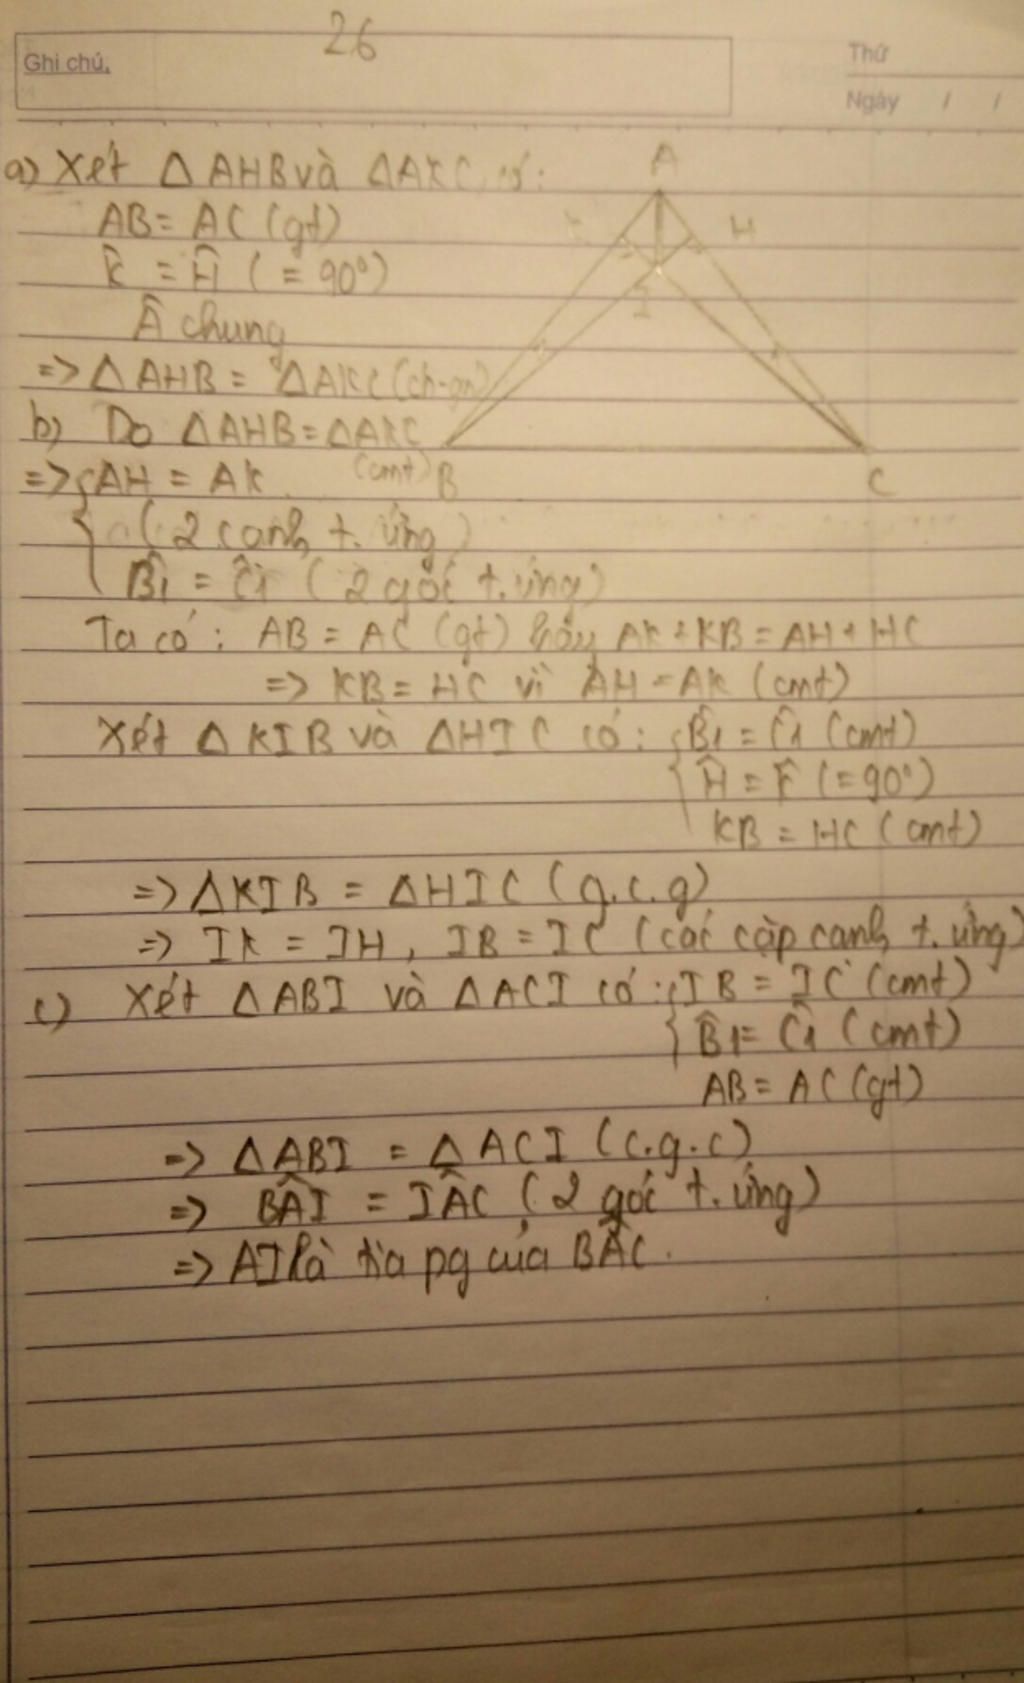 26
Ghi chú,
Thứ
Ngày / /
a) Xét Δ AHB và ΔAKC có:
AB = AC (gt)
K̂ = Ĥ (= 90°)
Â chung
=> Δ AHB = ΔAKC (ch-gn)
b) Do ΔAHB = ΔAKC
(cmt)
=> { AH = AK
(2 cạnh t. ứng)
B̂1 = Ĉ1 (2 góc t. ứng)
Ta có: AB = AC (gt) hay AK + KB = AH + HC
=> KB = HC vì AH = AK (cmt)
Xét Δ KIB và ΔHIC có: { B̂1 = Ĉ1 (cmt)
Ĥ = K̂ (= 90°)
KB = HC (cmt)
=> ΔKIB = ΔHIC (g.c.g)
=> IK = IH, IB = IC (các cặp cạnh t. ứng)
c) Xét ΔABI và ΔACI có: { IB = IC (cmt)
B̂1 = Ĉ1 (cmt)
AB = AC (gt)
=> ΔABI = ΔACI (c.g.c)
=> BÂI = IÂC (2 góc t. ứng)
=> AI là tia pg của BÂC.
A
H
I
B
C